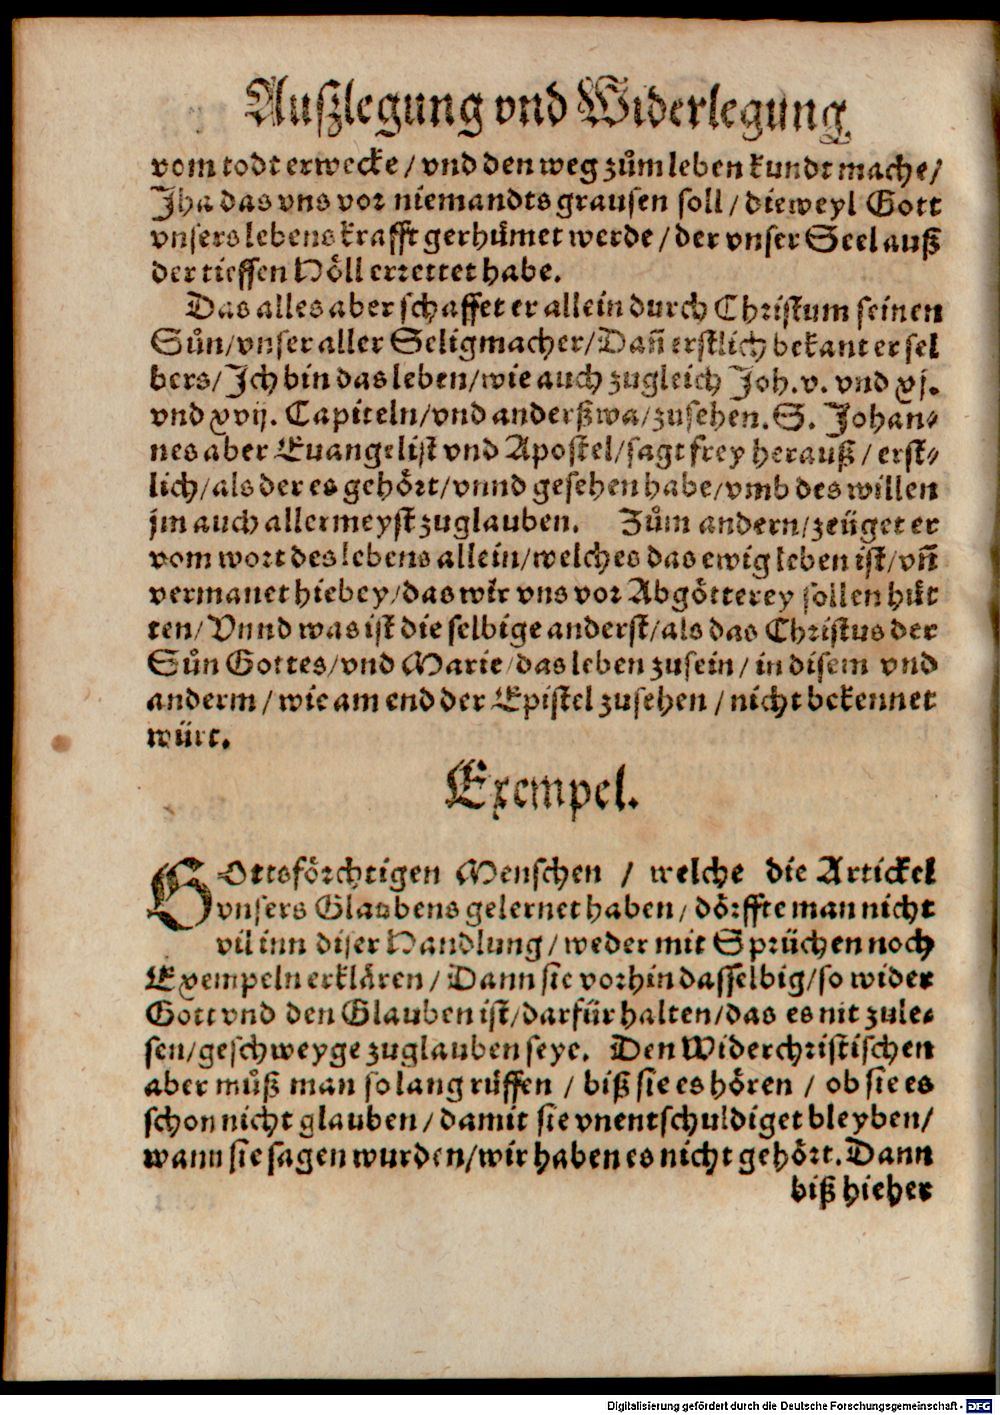 Auszlegung vnd Widerlegung
vom todt erwecke / vnd den weg zům leben kundt mache /
Jha das vns vor niemandts grausen soll / dieweyl Gott
vnsers lebens krafft gerhůmet werde / der vnser Seel auß
der tieffen Höll errettet habe.
Das alles aber schaffet er allein durch Christum seinen
Sůn / vnser aller Seligmacher / Dañ erstlich bekant er sel
bers / Jch bin das leben / wie auch zugleich Joh. v. vnd xj.
vnd xvij. Capiteln / vnd anderßwa / zusehen. S. Johan⸗
nes aber Euangelist vnd Apostel / sagt frey herauß / erst⸗
lich / als der es gehört / vnnd gesehen habe / vmb des willen
jm auch allermeyst zuglauben. Zům andern / zeüget er
vom wort des lebens allein / welches das ewig leben ist / vñ
vermanet hiebey / das wir vns vor Abgötterey sollen hüt
ten / Vnnd was ist die selbige anderst / als das Christus der
Sůn Gottes / vnd Marie / das leben zusein / in disem vnd
anderm / wie am end der Epistel zusehen / nicht bekennet
würt.
Exempel.
GOttsförchtigen Menschen / welche die Artickel
vnsers Glaubens gelernet haben / dörffte man nicht
vil inn diser Handlung / weder mit Sprüchen noch
Exempeln erklären / Dann sie vorhin dasselbig / so wider
Gott vnd den Glauben ist / darfür halten / das es nit zule⸗
sen / geschweyge zuglauben seye. Den Widerchristischen
aber můß man so lang rüffen / biß sie es hören / ob sie es
schon nicht glauben / damit sie vnentschuldiget bleyben /
wann sie sagen wurden / wir haben es nicht gehört. Dann
biß hieher
Digitalisierung gefördert durch die Deutsche Forschungsgemeinschaft - DFG